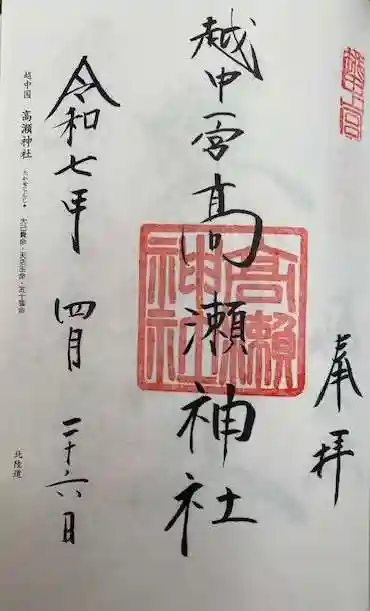 越中一宮
奉拝
越中一宮高瀬神社
高瀬神社
令和七年 四月 二十六日
越中国 高瀬神社 たかせじんじゃ 大己貴命・天活玉命・五十猛命
北陸道